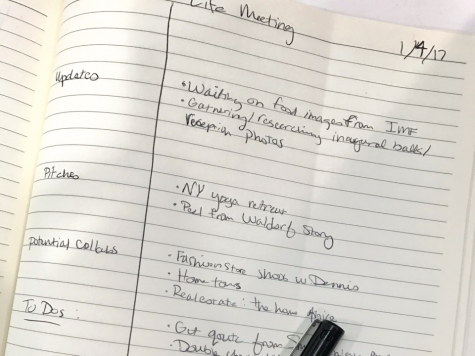 Life Meeting
1/4/17
Updates
• Waiting on food images from IMF
• Gathering/researching inaugural balls/
reception photos
Pitches
• NY yoga retreat
• Peel from Waldorf Story
potential Collabs
• Fashion Store shoot w Dennis
• Home tours
• Real esorate: the home
To Dos:
• Get quote from
• Double